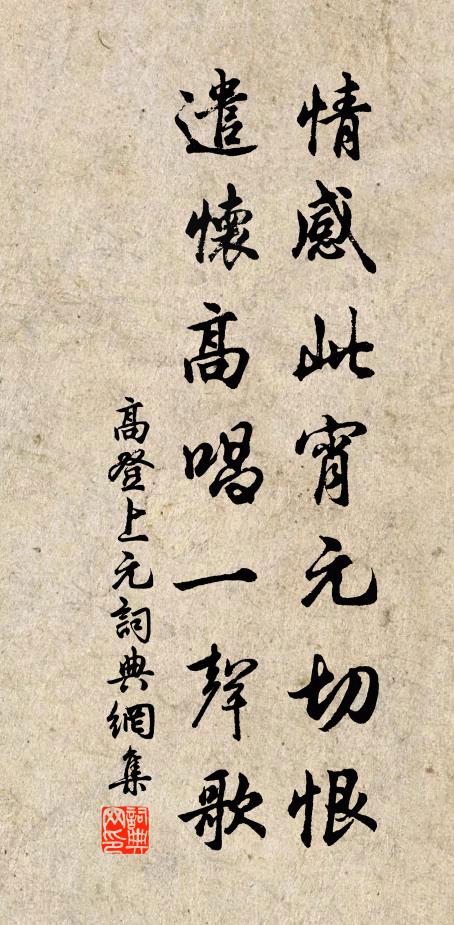 情感此宵元切恨
遣懷高唱一聲歌
高登上元詞典網集
詞典网印